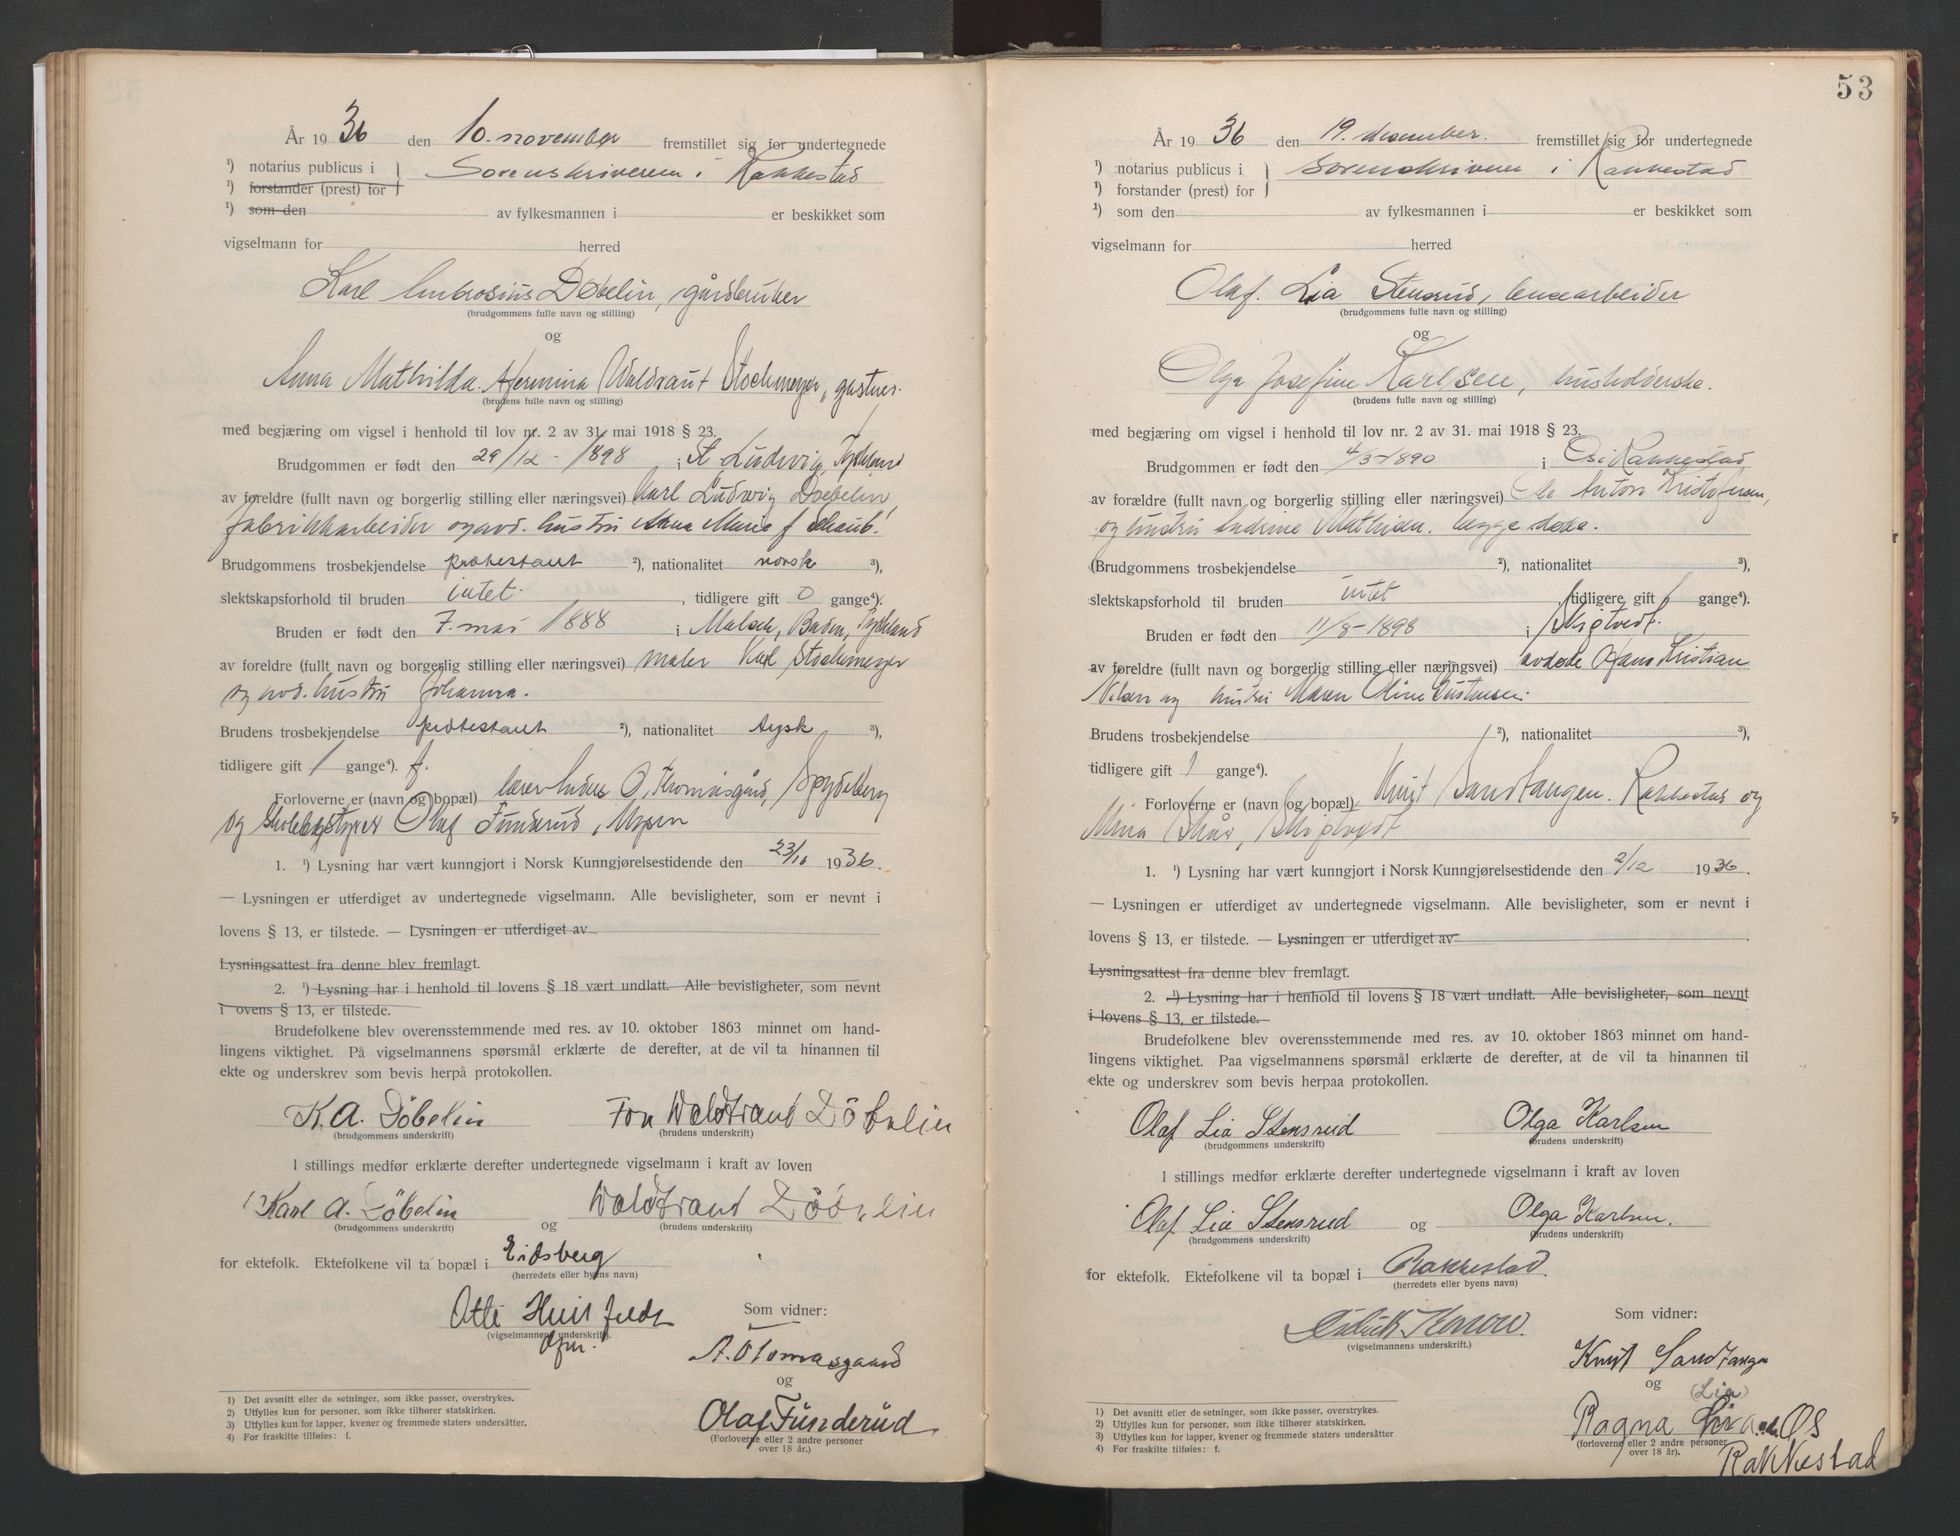 År 1936 den 10. november fremstillet sig for undertegnede
¹) notarius publicus i
¹) forstander (prest) for } Sorenskriveren i Rakkestad
¹) som den av fylkesmannen i er beskikket som
vigselmann for herred
Karl Ambrosius Døbelin, gårdbruker
(brudgommens fulle navn og stilling)
og
Anna Mathilda Hermina Waldraut Stockmeyer,
(brudens fulle navn og stilling)
med begjæring om vigsel i henhold til lov nr. 2 av 31. mai 1918 § 23.
Brudgommen er født den 29/12 - 1898 i St. Ludwig, Tyskland
av foreldre (fullt navn og borgerlig stilling eller næringsvei) Karl Ludwig Døebelin
fabrikkarbeider og avd. hustru Anna Marie f. Schaub.
Brudgommens trosbekjendelse protestant ²), nationalitet norsk ³),
slektskapsforhold til bruden intet , tidligere gift 0 gange⁴).
Bruden er født den 7. mai 1888 i Malsch, Baden, Tyskland
av foreldre (fullt navn og borgerlig stilling eller næringsvei) maler Karl Stockmeyer
og avd. hustru Johanna.
Brudens trosbekjendelse protestant ²), nationalitet tysk ³),
tidligere gift 1 gange⁴). f.
Forloverne er (navn og bopæl) lærer O. Thomasgård, Spydeberg
og Olaf Funderud, Mysen
1. ¹) Lysning har vært kunngjort i Norsk Kunngjørelsestidende den 23/10 1936.
— Lysningen er utferdiget av undertegnede vigselmann. Alle bevisligheter, som er nevnt i
lovens § 13, er tilstede. — Lysningen er utferdiget av
Lysningsattest fra denne blev fremlagt.
2. ¹) Lysning har i henhold til lovens § 18 vært undlatt. Alle bevisligheter, som nevnt
i ovens § 13, er tilstede.
Brudefolkene blev overensstemmende med res. av 10. oktober 1863 minnet om hand-
lingens viktighet. På vigselmannens spørsmål erklærte de derefter, at de vil ta hinannen til
ekte og underskrev som bevis herpå protokollen.
K. A. Döbelin Waldtraut Döbelin
(brudgommens underskrift) (brudens underskrift)
I stillings medfør erklærte derefter undertegnede vigselmann i kraft av loven
Karl A. Döbelin og Waldtraut Döbelin
(brudgommens underskrift) (brudens underskrift)
for ektefolk. Ektefolkene vil ta bopæl i Eidsberg
(herredets eller byens navn)
Otto Huitfeldt Som vidner:
(vigselmannens underskrift).
A. Thomasgaard
og
Olaf Funderud
(Forloverne eller 2 andre personer
over 18 år.)
1) Det avsnitt eller de setninger, som ikke passer, overstrykes.
2) Utfylles kun for personer, som ikke tilhører statskirken.
3) Utfylles kun for lapper, kvener og fremmede staters undersåtter.
4) For fraskilte tilføies: f.
53
År 1936 den 19. desember. fremstillet sig for undertegnede
¹) notarius publicus i
¹) forstander (prest) for } Sorenskriveren i Rakkestad
¹) som den av fylkesmannen i er beskikket som
vigselmann for herred
Olaf Lia Stensrud,
(brudgommens fulle navn og stilling)
og
Olga Josefine Karlsen, husholderske.
(brudens fulle navn og stilling)
med begjæring om vigsel i henhold til lov nr. 2 av 31. mai 1918 § 23.
Brudgommen er født den 4/3-1890 i Os i Rakkestad
av forældre (fullt navn og borgerlig stilling eller næringsvei) Ole Anton Kristofersen,
og hustru Andrine Mathilda. begge døde.
(Brudgommens trosbekjendelse ²), nationalitet ³),
slektskapsforhold til bruden intet , tidligere gift gange⁴).
Bruden er født den 11/8-1898 i Skiptvedt.
av foreldre (fullt navn og borgerlig stilling eller næringsvei) avdøde Hans Kristian
Nilsen og hustru Maren Oline
Brudens trosbekjendelse ²), nationalitet ³),
tidligere gift 1 gange⁴).
Forloverne er (navn og bopæl) Knut Sandtangen. Rakkestad og
Mina Skår, Skiptvedt
1. ¹) Lysning har vært kunngjort i Norsk Kunngjørelsestidende den 2/12 1936.
— Lysningen er utferdiget av undertegnede vigselmann. Alle bevisligheter, som er nevnt i
lovens § 13, er tilstede. — Lysningen er utferdiget av
Lysningsattest fra denne blev fremlagt.
2. ¹) Lysning har i henhold til lovens § 18 vært undlatt. Alle bevisligheter, som nevnt
i lovens § 13, er tilstede.
Brudefolkene blev overensstemmende med res. av 10. oktober 1863 minnet om hand-
lingens viktighet. Paa vigselmannens spørsmål erklærte de derefter, at de vil ta hinannen til
ekte og underskrev som bevis herpaa protokollen.
Olaf Lia Stensrud Olga Karlsen
(brudgommens underskrift) (brudens underskrift)
I stillings medfør erklærte derefter undertegnede vigselmann i kraft av loven
Olaf Lia Stensrud og Olga Karlsen.
(brudgommens underskrift) (brudens underskrift)
for ektefolk. Ektefolkene vil ta bopæl i Rakkestad.
(herredets eller byens navn)
Som vidner:
(vigselmannens underskrift.)
Knut Sandtangen
og (Lia)
Ragna Os
(forloverne eller 2 andre personer
over 18 år).
Rakkestad
1) Det avsnitt eller de setninger, som ikke passer, overstrykes.
2) Utfylles kun for personer, som ikke tilhører statskirken.
3) Utfylles kun for lapper, kvener og fremmede staters undersåtter
4) For fraskilte tilføies: f.